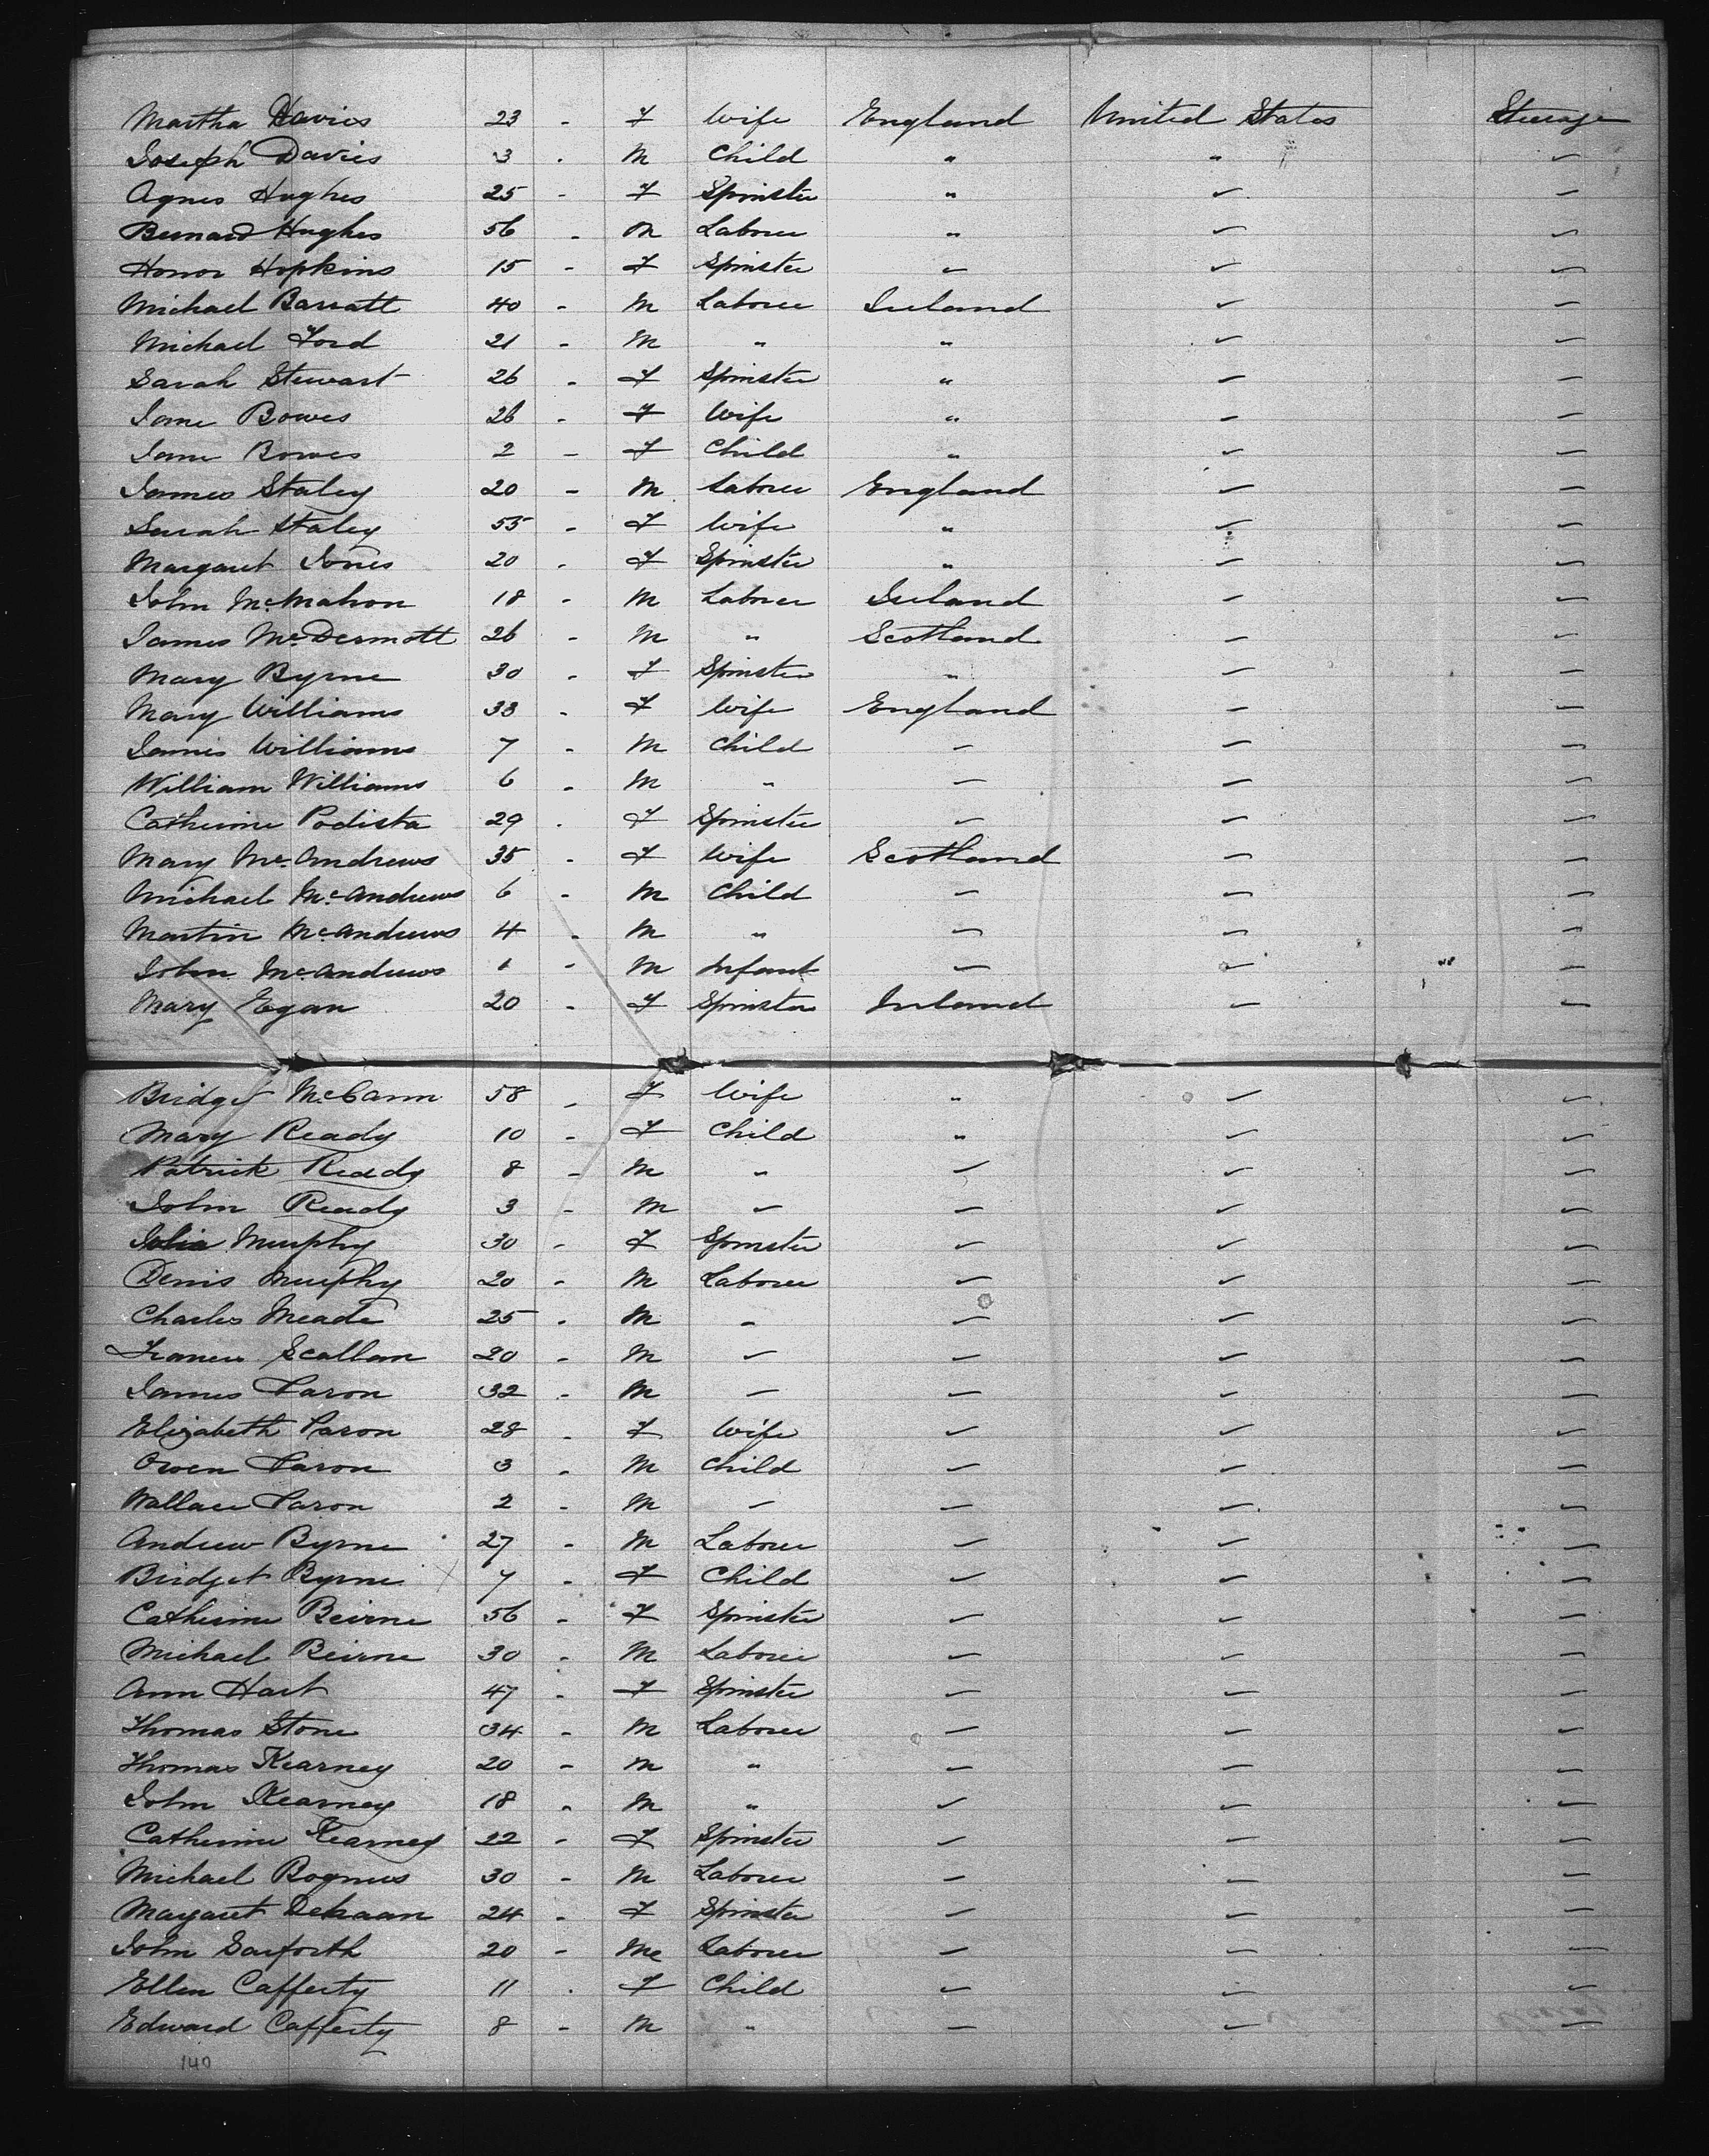 Martha Davies 23 - F Wife England United States Steerage
Joseph Davies 3 - M Child " " "
Agnes Hughes 25 - F Spinster " " "
Bernard Hughes 56 - M Laborer " " "
Honor Hopkins 15 - F Spinster " " "
Michael Barratt 40 - M Laborer Ireland " "
Michael Ford 21 - M " " " "
Sarah Stewart 26 - F Spinster " " "
Jane Bowes 26 - F Wife " " "
Jane Bowes 2 - F Child " " "
James Staley 20 - M Laborer England " "
Sarah Staley 55 - F Wife " " "
Margaret Jones 20 - F Spinster " " "
John McMahon 18 - M Laborer Ireland " "
James McDermott 26 - M " Scotland " "
Mary Byrne 30 - F Spinster " " "
Mary Williams 33 - F Wife England " "
James Williams 7 - M Child " " "
William Williams 6 - M " " " "
Catherine Podista 29 - F Spinster " " "
Mary McAndrews 35 - F Wife Scotland " "
Michael McAndrews 6 - M Child " " "
Martin McAndrews 4 - M " " " "
John McAndrews 1 - M Infant " " "
Mary Egan 20 - F Spinster Ireland " "
Bridget McCann 58 - F Wife " " "
Mary Ready 10 - F Child " " "
Patrick Ready 8 - M " " " "
John Ready 3 - M " " " "
Julia Murphy 30 - F Spinster " " "
Denis Murphy 20 - M Laborer " " "
Charles Meade 25 - M " " " "
Francis Scallan 20 - M " " " "
James Caron 32 - M " " " "
Elizabeth Caron 28 - F Wife " " "
Owen Caron 3 - M Child " " "
Wallace Caron 2 - M " " " "
Andrew Byrne 27 - M Laborer " " "
Bridget Byrne 7 - F Child " " "
Catherine Beirne 56 - F Spinster " " "
Michael Beirne 30 - M Laborer " " "
Ann Hart 47 - F Spinster " " "
Thomas Stone 34 - M Laborer " " "
Thomas Kearney 20 - M " " " "
John Kearney 18 - M " " " "
Catherine Kearney 22 - F Spinster " " "
Michael 30 - M Laborer " " "
Margaret Dehaan 24 - F Spinster " " "
John Garforth 20 - M Laborer " " "
Ellen Cafferty 11 - F Child " " "
Edward Cafferty 8 - M " " " "
140